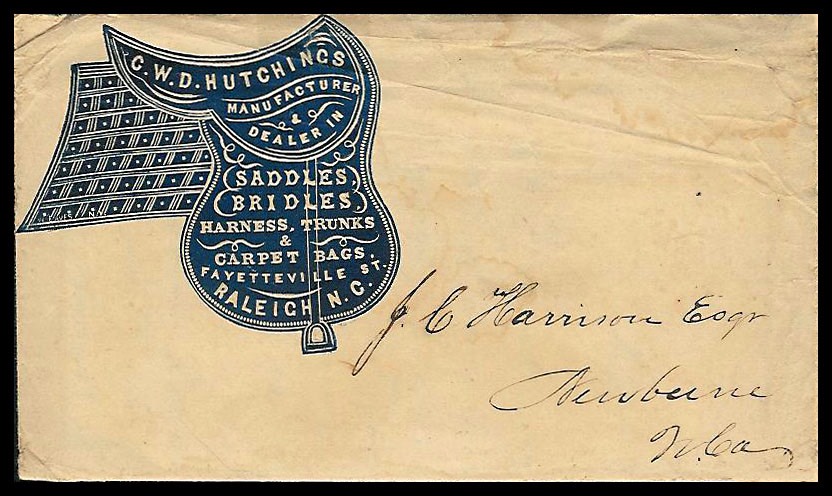 C.W.D. HUTCHINGS
MANUFACTURER
&
DEALER IN
SADDLES,
BRIDLES,
HARNESS, TRUNKS
&
CARPET BAGS,
FAYETTEVILLE ST.
RALEIGH N.C.
J. C Harrison Esqr
Newberne
N. Ca